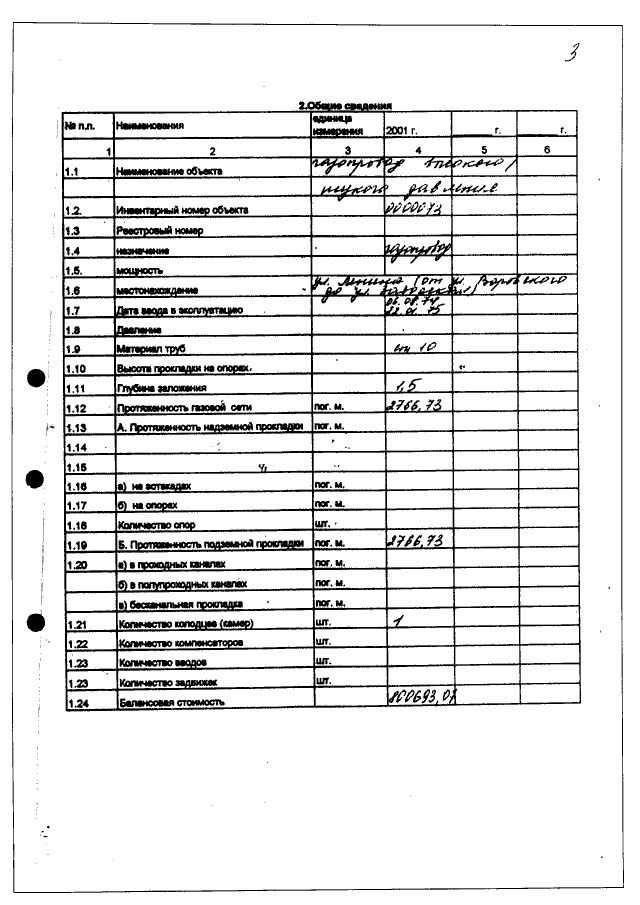 3
2.Общие сведения
№ п.п. Наименования единица измерения 2001 г. ______г. ______г.
1 2 3 4 5 6
1.1 Наименование объекта газопровод высокого/
низкого давление
1.2. Инвентарный номер объекта 0000073
1.3 Реестровый номер
1.4 назначение газопровод
1.5. мощность
1.6 местонахождение ул. Ленина (от ул. Воровского
до ул.
1.7 Дата ввода в эксплуатацию 06.08.74
22.01.75
1.8 Давление
1.9 Материал труб ст 10
1.10 Высота прокладки на опорах.
1.11 Глубина заложения 1,5
1.12 Протяженность газовой сети пог. м. 2766,73
1.13 А. Протяженность надземной прокладки пог. м.
1.14
1.15
1.16 а) на эстакадах пог. м.
1.17 б) на опорах пог. м.
1.18 Количество опор шт.
1.19 Б. Протяженность подземной прокладки пог. м. 2766,73
1.20 а) в проходных каналах пог. м.
б) в полупроходных каналах пог. м.
в) бесканальная прокладка пог. м.
1.21 Количество колодцев (камер) шт. 1
1.22 Количество компенсаторов шт.
1.23 Количество вводов шт.
1.23 Количество задвижек шт.
1.24 Балансовая стоимость 800693,07